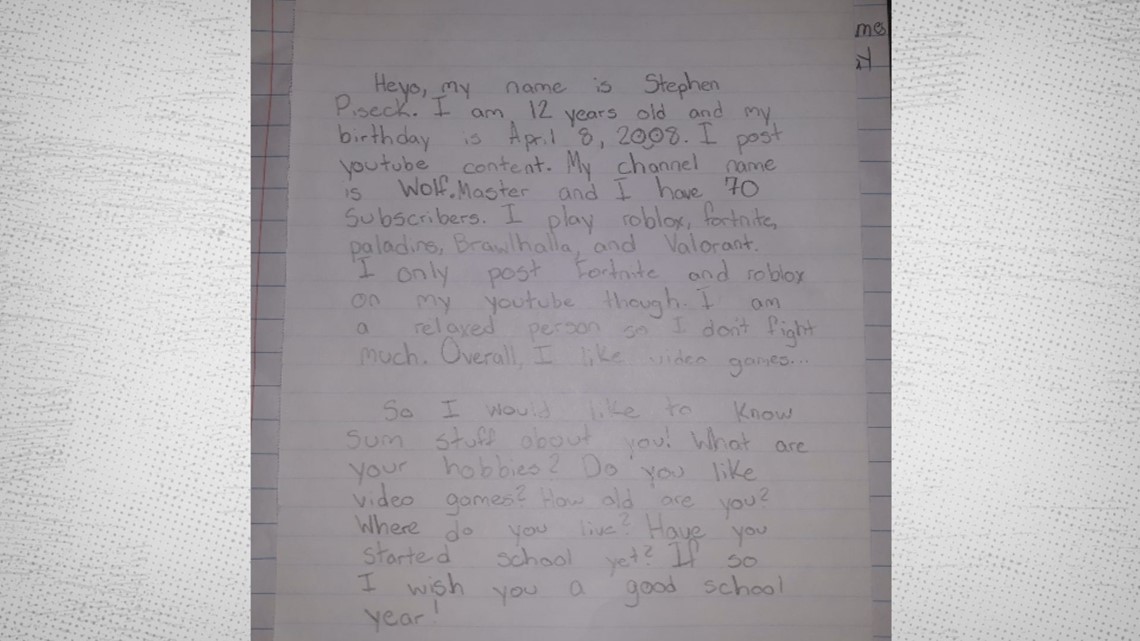 me
Heyo, my name is Stephen
Piseck. I am 12 years old and my
birthday is April 8, 2008. I post
youtube content. My channel name
is Wolf.Master and I have 70
Subscribers. I play roblox, fortnite,
paladins, Brawlhalla, and Valorant.
I only post Fortnite and roblox
on my youtube though. I am
a relaxed person so I don't fight
much. Overall, I like video games...
So I would like to know
sum stuff about you! What are
your hobbies? Do you like
video games? How old are you?
Where do you live? Have you
started school yet? If so
I wish you a good school
year!